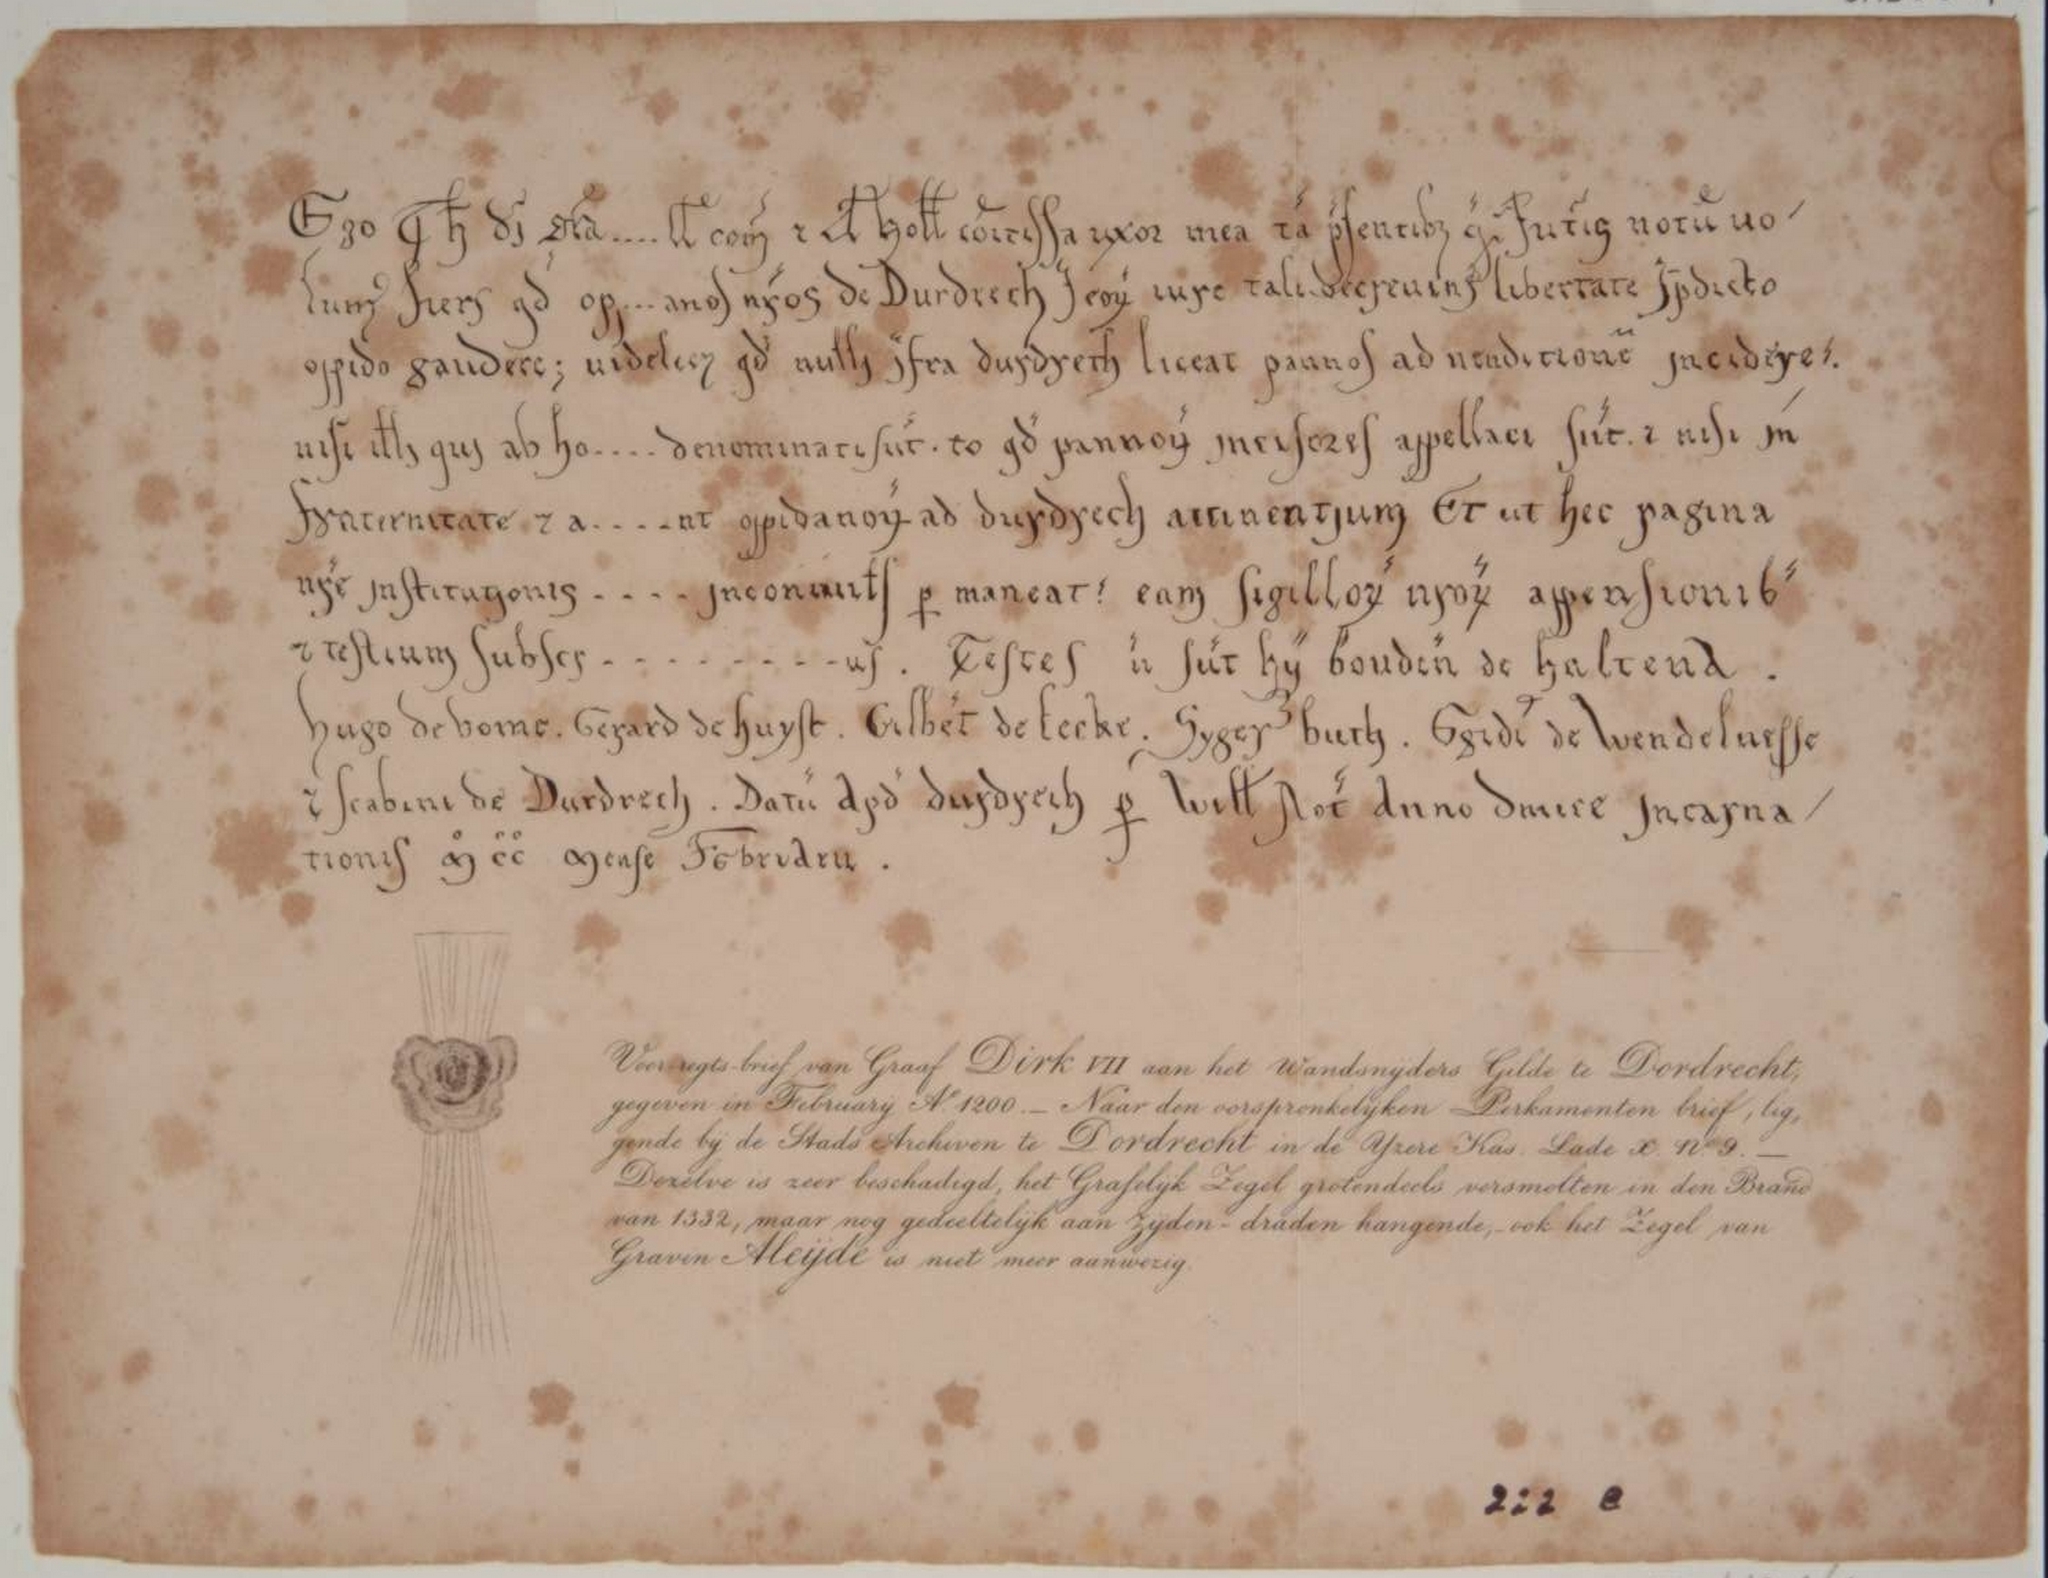 Ego Th di gra.... ll com̄ ⁊ A holl cōitissa uxor mea tā p̄sentibz q̄ futuris notū uo
lum fieri qd op...anos nr̄os de Durdrech coȳ iure tali decreuim libertate p̄dicto
oppido gaudere; uidelicz qd nulli īfra durdrech liceat pannos ad uenditionē incidere.
nisi illis qui ab ho.... denominati sūt. to qd pannoꝝ incisores appellati sūt. ⁊ nisi in
fraternitate ⁊ a.....nt oppidanoꝝ ad durdrech attinentium Et ut hec pagina
nr̄e institutionis .... inconuuls ꝑ maneat eam sigilloꝝ nr̄oꝝ appensionib
⁊ testium subscr .........us. Testes ū sūt hij boudeū de haltena.
hugo de vorne. Gerard de huyst. Gilbēt de lecke. Syger buth. Egidi de Wendeluesse
⁊ scabini de Durdrech. Datū Apd durdrech ꝑ Will Not Anno dmice Incarna
tionis M CC Mense Februarii.
Voor-regts-brief van Graaf Dirk VII aan het Wandsnyders Gilde te Dordrecht,
gegeven in February Aº 1200. — Naar den oorspronkelyken Perkamenten brief, lig,
gende bij de Stads Archiven te Dordrecht in de Yzere Kas. Lade X. Nº 9. —
Dezelve is zeer beschadigd, het Grafelijk Zegel grotendeels versmolten in den Brand
van 1332, maar nog gedeeltelijk aan zyden-draden hangende, - ook het Zegel van
Graven Aleijde is niet meer aanwezig.
222 e